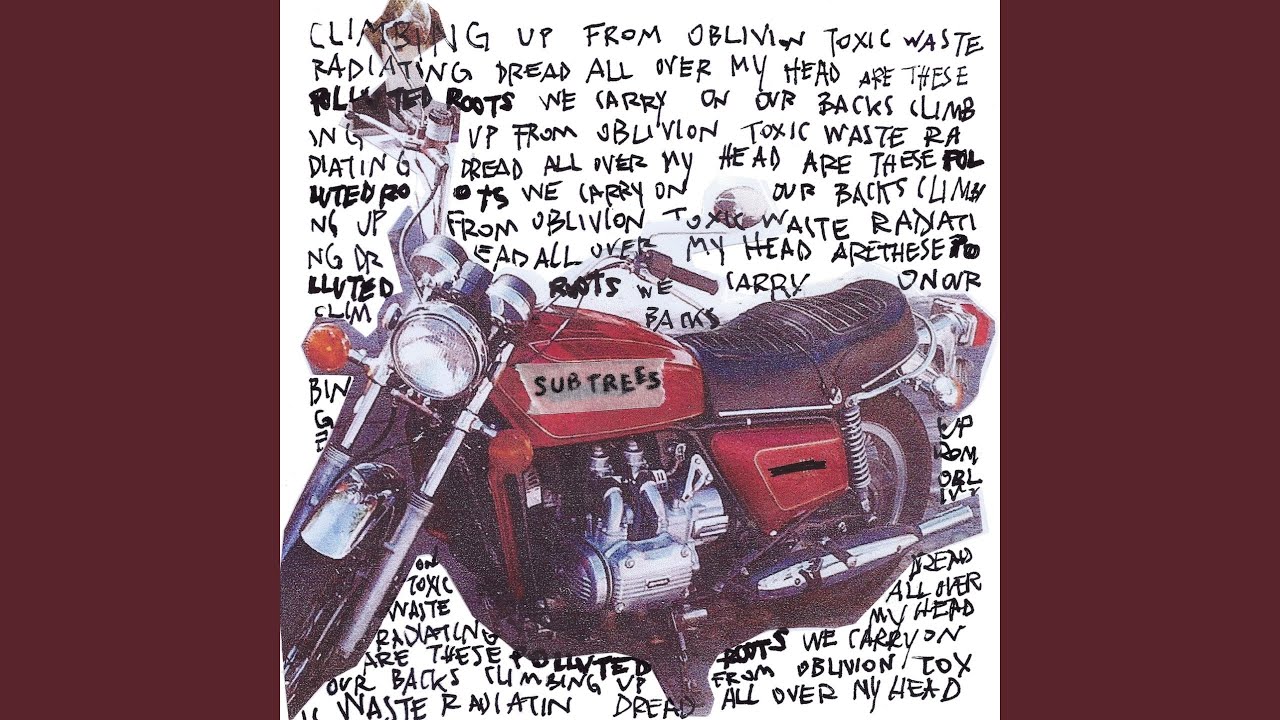 CLIMBING UP FROM OBLIVION TOXIC WASTE
RADIATING DREAD ALL OVER MY HEAD ARE THESE
POLLUTED ROOTS WE CARRY ON OUR BACKS CLIMB
ING UP FROM OBLIVION TOXIC WASTE RA
DIATING DREAD ALL OVER MY HEAD ARE THESE POL
LUTED RO OTS WE CARRY ON OUR BACKS CLIMBI
NG UP FROM OBLIVION TOXIC WASTE RADIATI
NG DR EAD ALL OVER MY HEAD ARETHESE PO
LLUTED ROOTS WE CARRY ON OUR
CLIM BACKS
SUBTREES
BIN
G UP
ROM
OBL
ON DREAD
TOXIC ALL OVER
WASTE MY HEAD
RADIATING ROOTS WE CARRY ON
ARE THESE POLLUTED FROM OBLIVION TOX
OUR BACKS CLIMBING UP
IC WASTE RADIATIN DREAD ALL OVER MY HEAD